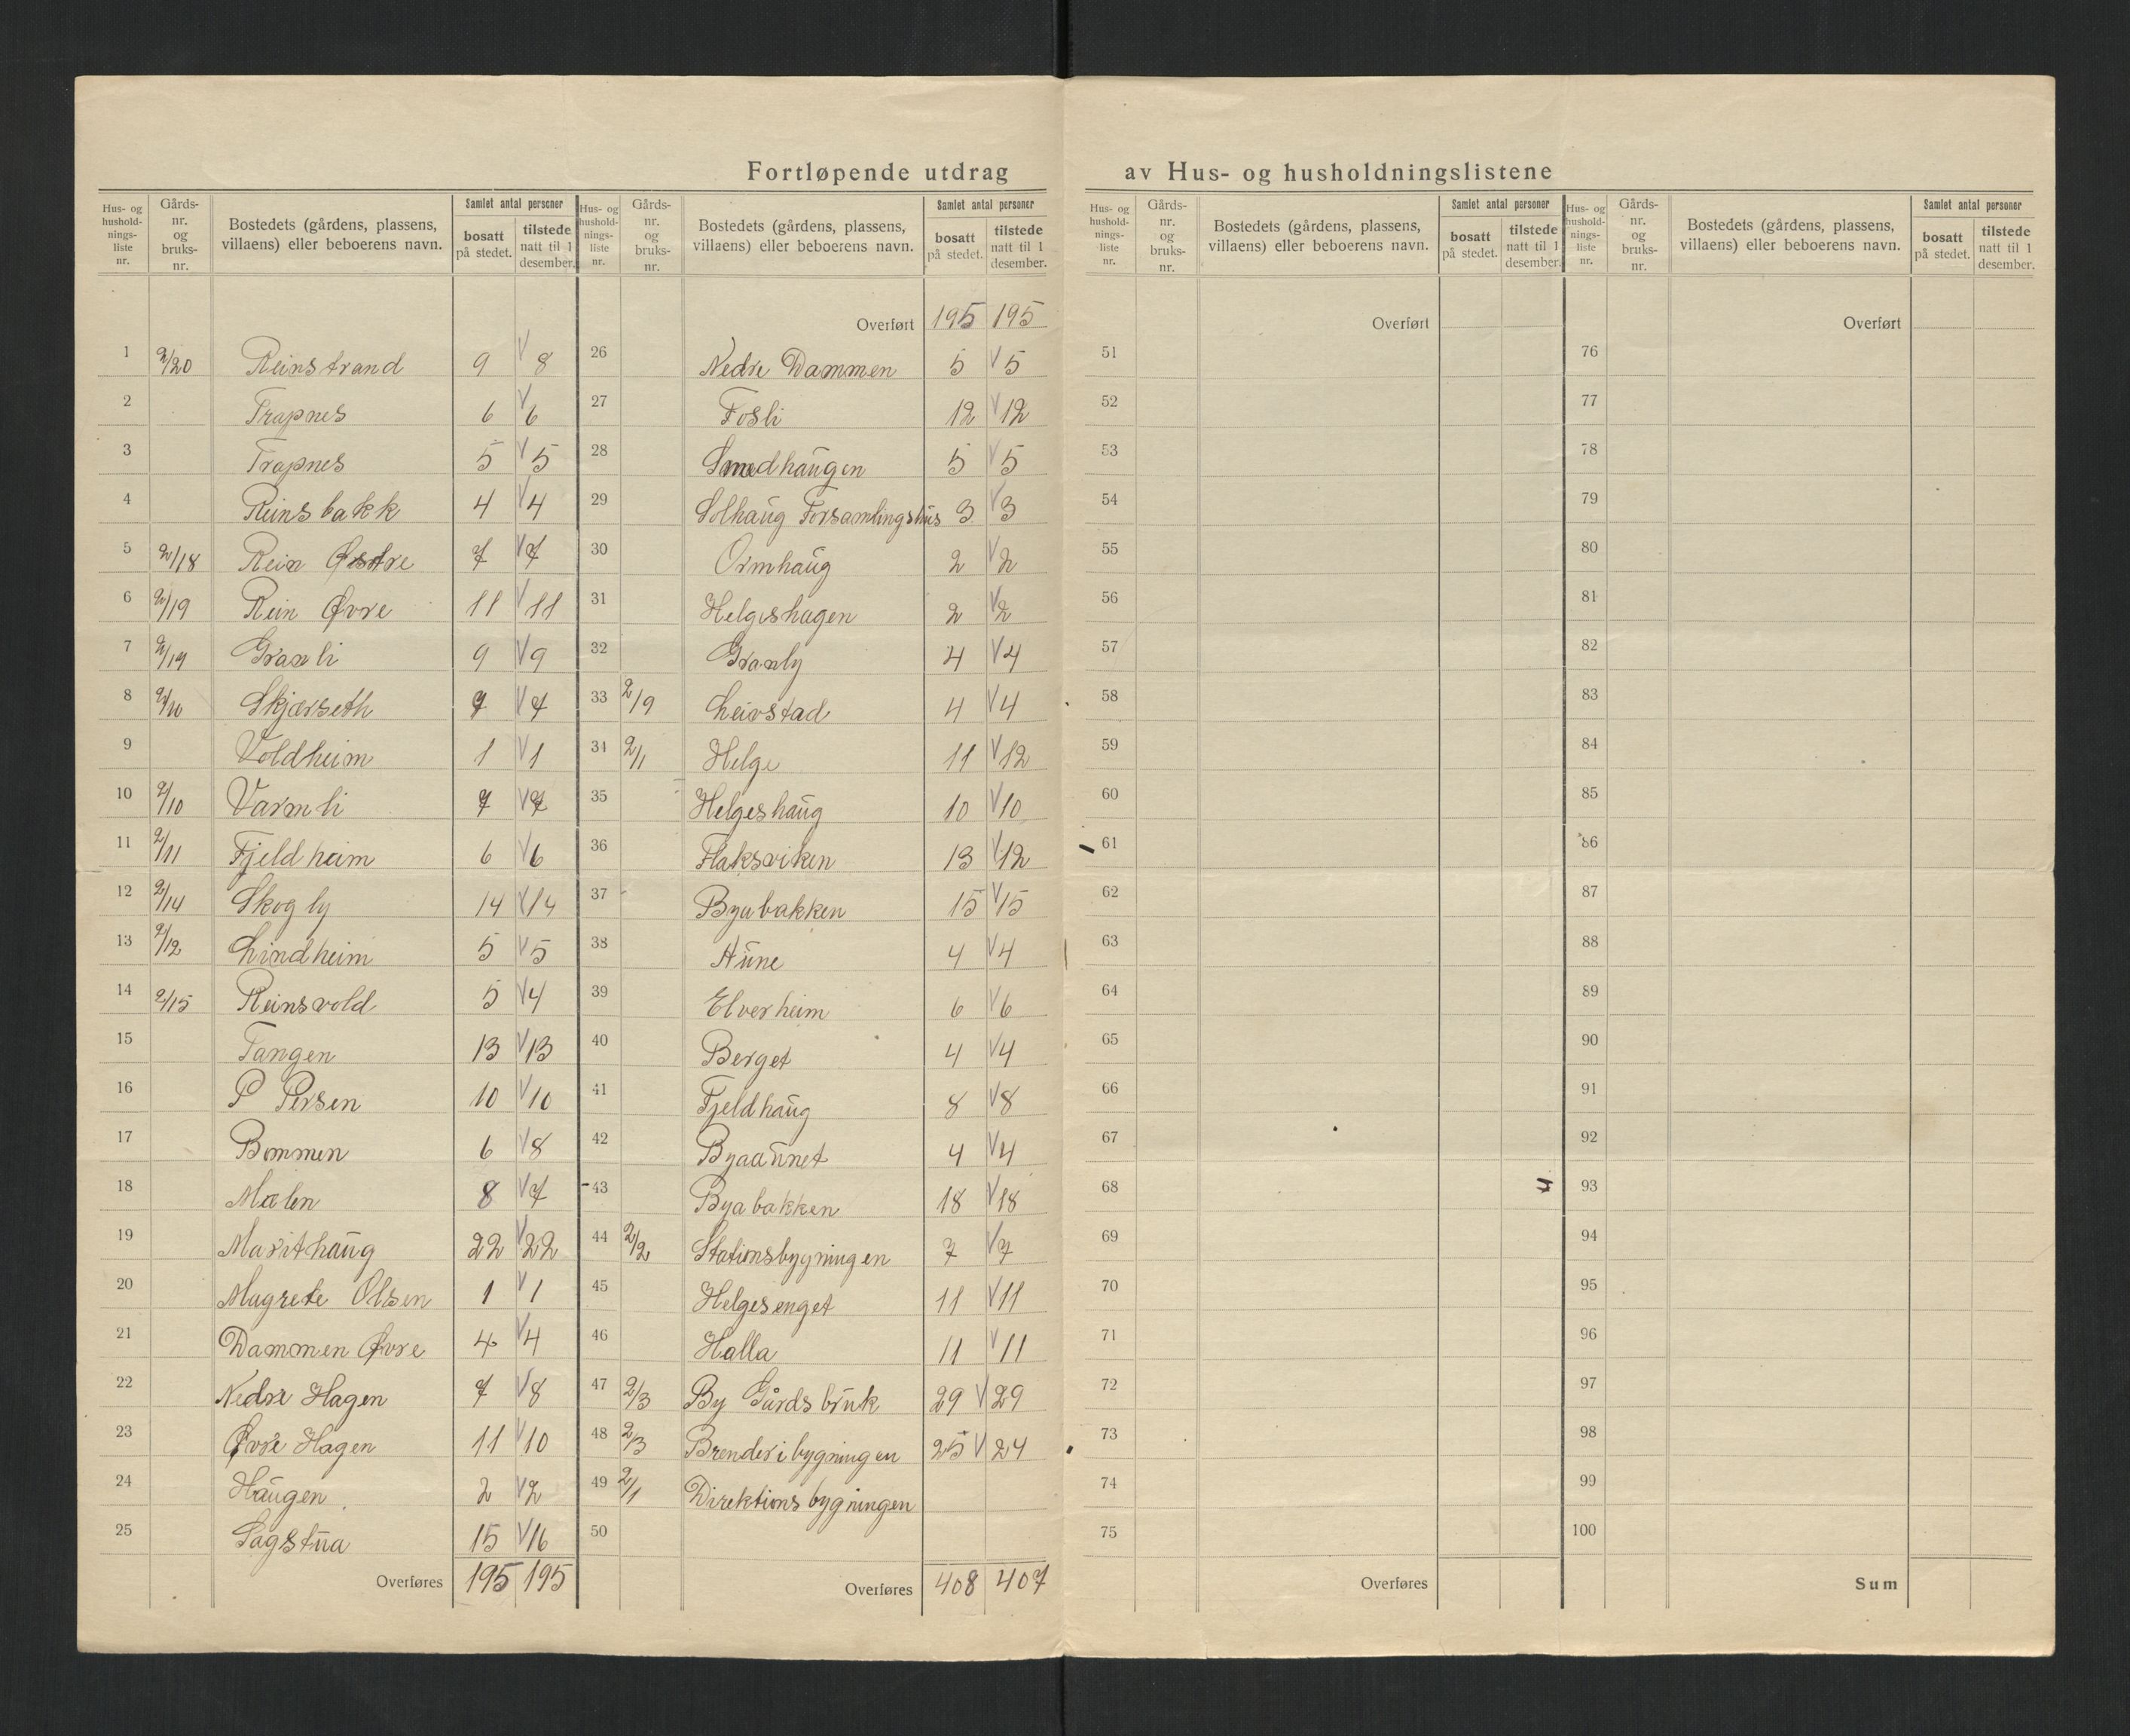 Fortløpende utdrag av Hus- og husholdningslistene
Hus- og hushold-nings-liste nr. Gårds-nr. og bruks-nr. Bostedets (gårdens, plassens, villaens) eller beboerens navn. Samlet antal personer bosatt på stedet. tilstede natt til 1 desember.
1 2/20 Reinstrand 9 V 8
2 Trapnes 6 V 6
3 Trapnes 5 V 5
4 Reinsbakk 4 V 4
5 2/18 Rein Østre 7 V 7
6 2/19 Rein Øvre 11 V 11
7 2/19 Granli 9 V 9
8 2/10 Skjærseth 7 V 7
9 Voldheim 1 V 1
10 2/10 Varmli 7 V 7
11 2/11 Fjeldheim 6 V 6
12 2/14 Skogly 14 V 14
13 2/12 Lindheim 5 V 5
14 2/15 Reinsvold 5 V 4
15 Tangen 13 V 13
16 P Persen 10 V 10
17 Bommen 6 V 8
18 Mælen 8 V 7
19 Marithaug 22 V 22
20 Magrete Olsen 1 V 1
21 Dammen Øvre 4 V 4
22 Nedre Hagen 7 V 8
23 Øvre Hagen 11 V 10
24 Haugen 2 V 2
25 Sagstua 15 V 16
Overføres 195 195
Hus- og hushold-nings-liste nr. Gårds-nr. og bruks-nr. Bostedets (gårdens, plassens, villaens) eller beboerens navn. Samlet antal personer bosatt på stedet. tilstede natt til 1 desember.
Overført 195 195
26 Nedre Dammen 5 V 5
27 Fosli 12 V 12
28 Smedhaugen 5 V 5
29 Solhaug Forsamlingshus 3 V 3
30 Ormhaug 2 V 2
31 Helgeshagen 2 V 2
32 Granly 4 V 4
33 2/9 Leirstad 4 V 4
34 2/1 Helge 11 V 12
35 Helgeshaug 10 V 10
36 Flaksviken 13 V 12
37 Byabakken 15 V 15
38 Aune 4 V 4
39 Elverheim 6 V 6
40 Berget 4 V 4
41 Fjeldhaug 8 V 8
42 Byaaunet 4 V 4
43 Byabakken 18 V 18
44 2/2 Stationsbygningen 7 V 7
45 Helgesenget 11 V 11
46 Halla 11 V 11
47 2/3 By Gårdsbruk 29 V 29
48 2/3 Brenderibygningen 25 V 24
49 2/1 Direktionsbygningen
50
Overføres 408 407
Hus- og hushold-nings-liste nr. Gårds-nr. og bruks-nr. Bostedets (gårdens, plassens, villaens) eller beboerens navn. Samlet antal personer bosatt på stedet. tilstede natt til 1 desember.
Overført
51
52
53
54
55
56
57
58
59
60
61
62
63
64
65
66
67
68
69
70
71
72
73
74
75
Overføres
Hus- og hushold-nings-liste nr. Gårds-nr. og bruks-nr. Bostedets (gårdens, plassens, villaens) eller beboerens navn. Samlet antal personer bosatt på stedet. tilstede natt til 1 desember.
Overført
76
77
78
79
80
81
82
83
84
85
86
87
88
89
90
91
92
93
94
95
96
97
98
99
100
Sum